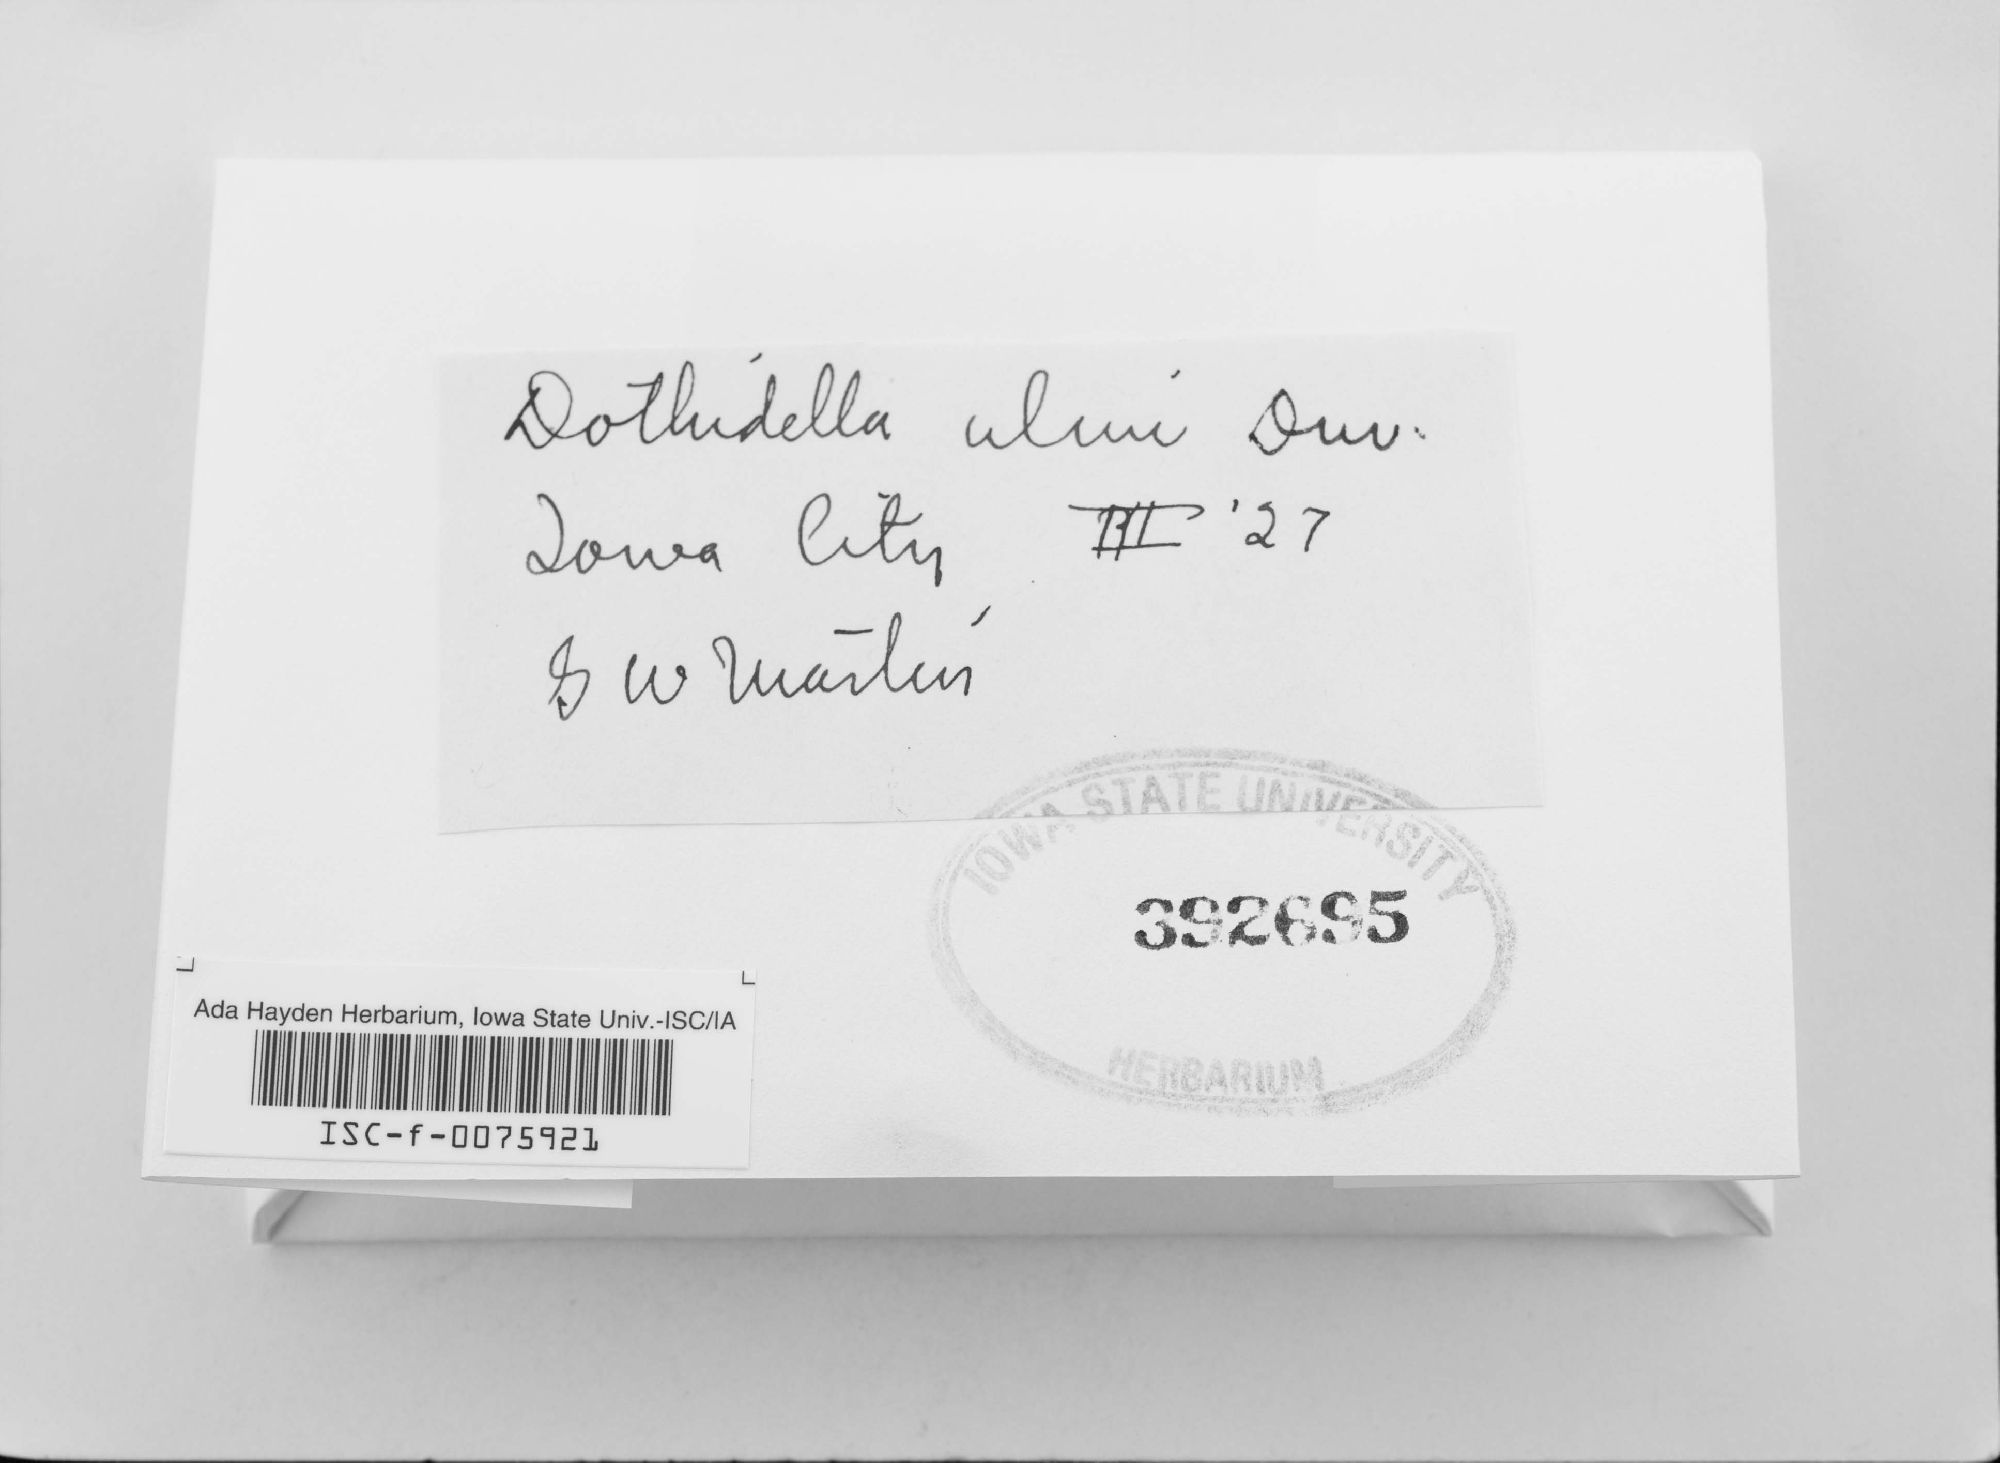 Dothidella ulmi Duv.
Iowa City III '27
G W Martin
IOWA STATE UNIVERSITY
392695
HERBARIUM
Ada Hayden Herbarium, Iowa State Univ.-ISC/IA
ISC-f-0075921